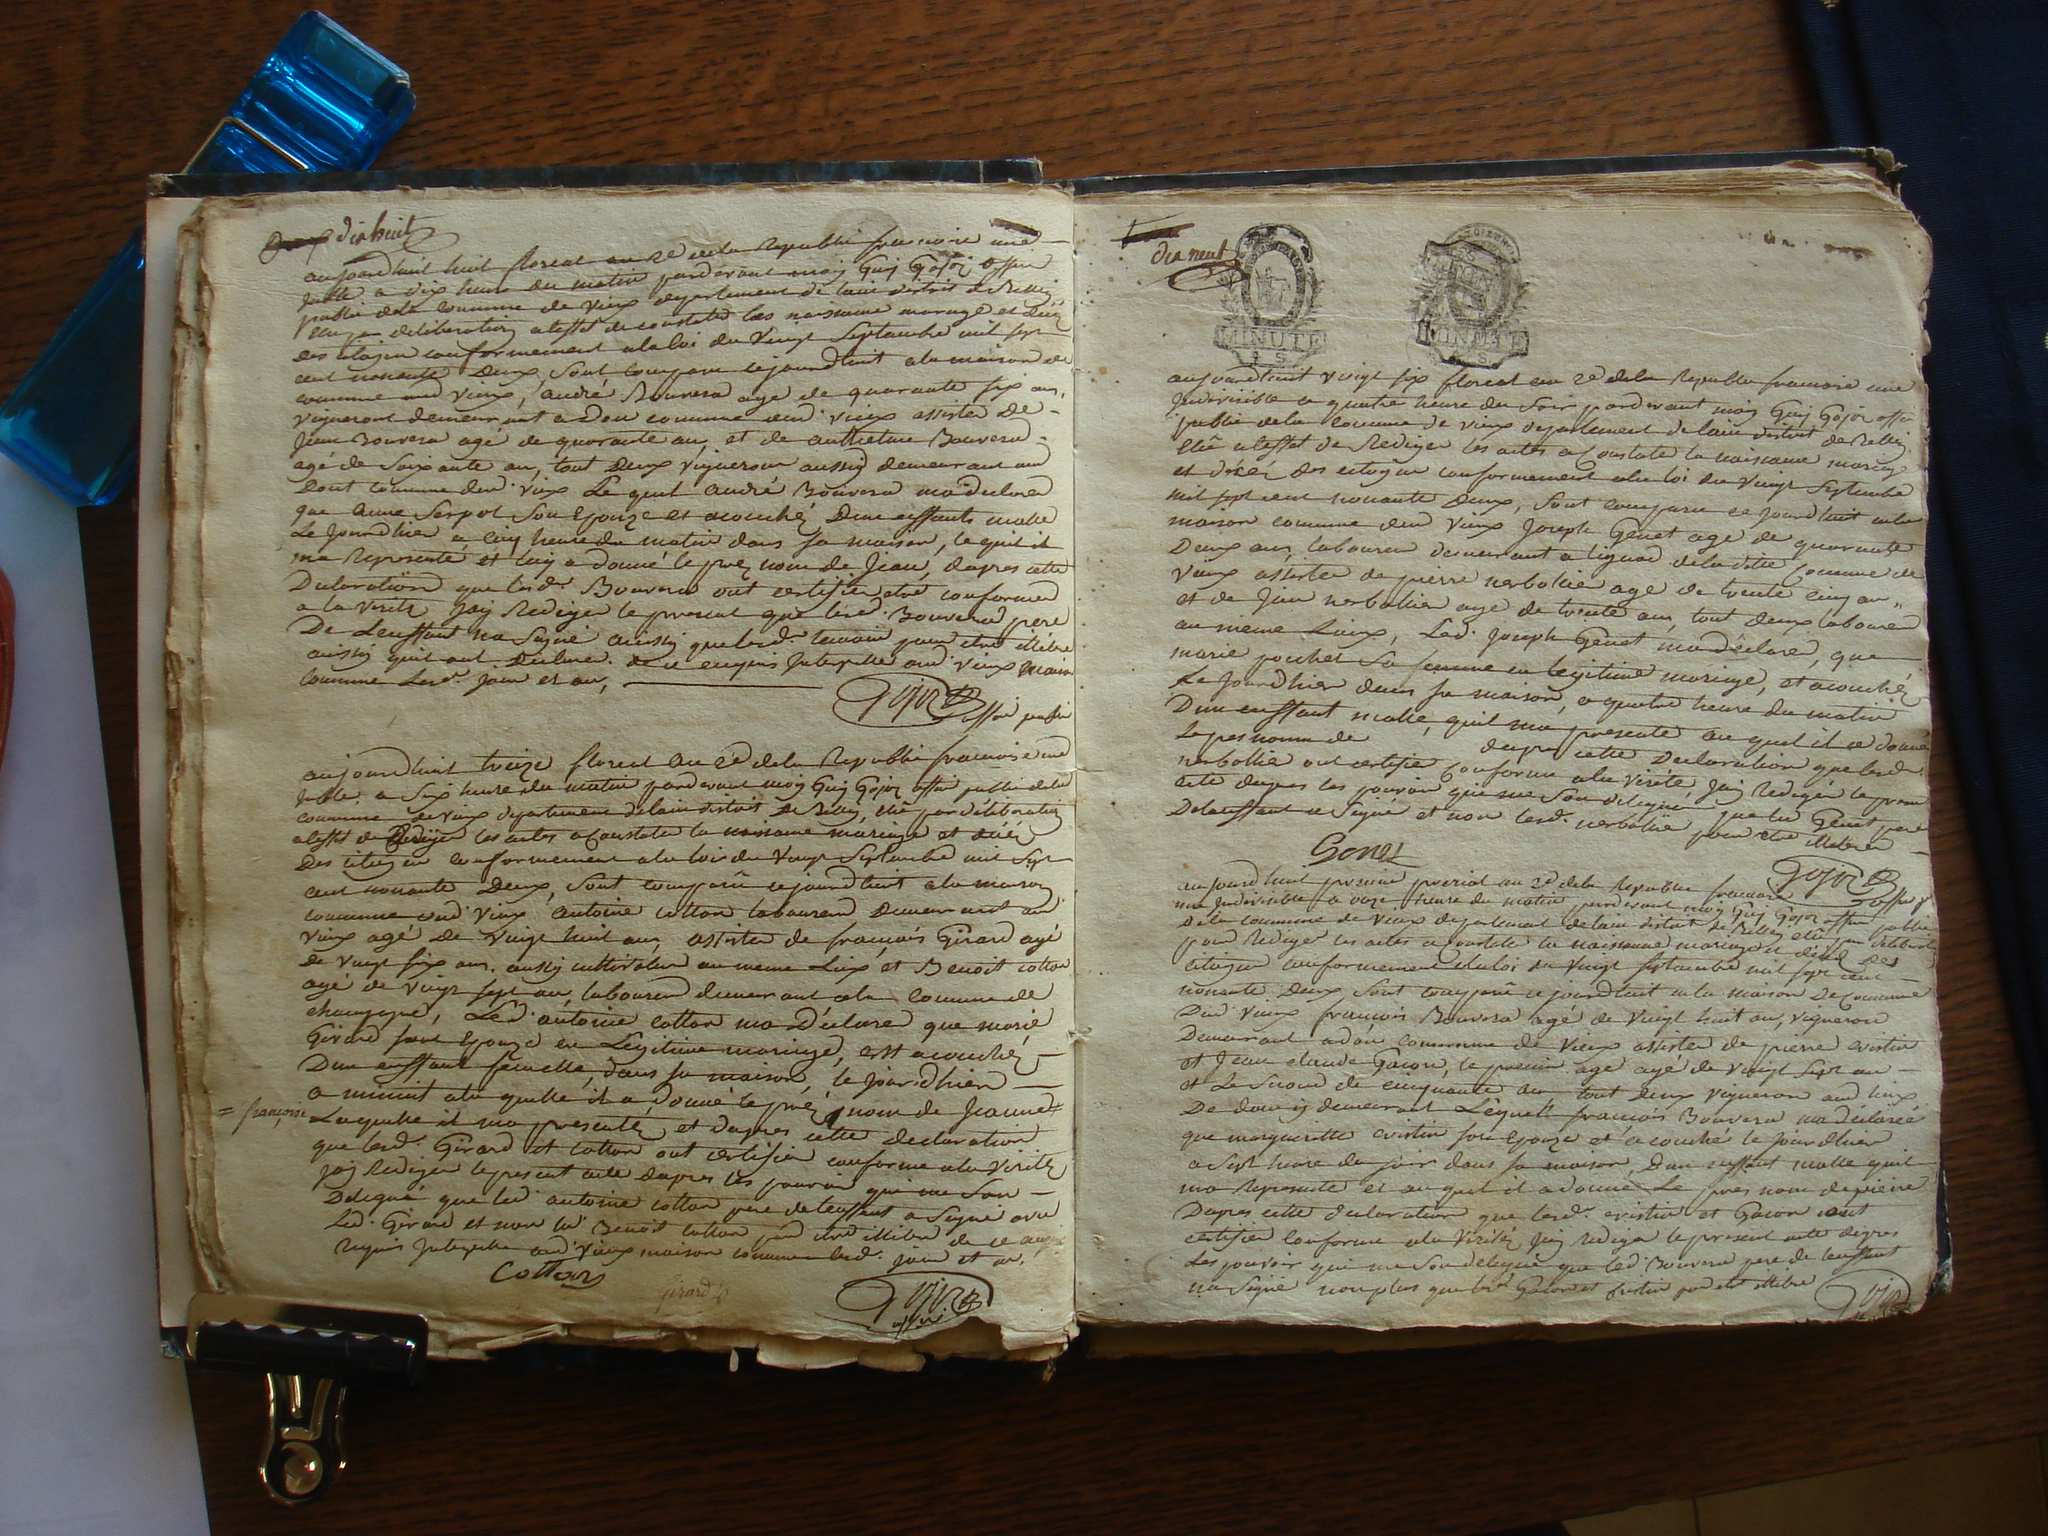 dix huit
aujourdhuit huit floreal an 2e de la Republi francoise une
Juble a dix heure du matin pardevant moy Guy Gojoz offici
public de la commune de Vieux departement de lain distrit de Belley
par deliberation a leffet de constater les naissance mariage et décé
des citoyen conformement a la loi du Vingt Septembre mil sept
cent nonante Deux, sont comparu cejourdhuit a la maison de
commune aud Vieux, André Bouvera age de quarante six ans,
vigneront demeurant a don commune dud. vieux assister De
Jean Bouvera agé de quarante an, et de Bouvera
agé de Soixante an, tout Deux vigneron aussy demeurant aud
Dont commune dud. vieux Le quel André Bouvera ma declaré
que anne Serpol Son Epouze et acouché Dun enffants malle
Le Jourdhier a cinq heure du matin dans Sa maison, le quel il
ma Representé et luy a donné le pré nom de Jean, dapres cette
Declaration que lesd. Bouvera ont certifier etre conforme
a la verité Jay Rediger le present que led. Bouvera pere
De Lenffant na Signé ainssy que lesd. temoin pour etre illétré
ainssy quil ont Declaré. de ce enquis Interpelle aud. vieux maison
commune Lesd. Jour et an,
Gojoz
offici public
aujourdhuit treize floreal an 2e de la Republi francoise une
Juble. a Six heure du matin pardevant moy Guy Gojoz offici public de la
commune de vieux departement de lain distrit de Belley, élû par déliberation
a leffet de Rediger les actes a Constate la naissance mariage et décé
Des citoyen conformement a la loi du Vingt Septembre mil Sept
cent nonante Deux, Sont comparû cejourdhuit a la maison
commune aud Vieux Antoine Cotton laboureur Demeurant aud
Vieux agé De vingt huit ans, assister de françois Girard agé
De Vingt Six ans. aussy cultivateur au meme Lieux et Benoit Cotton
agé de Vingt Sept an, laboureur demeurant a la Commune de
champagne, Led. antoine Cotton ma Déclaré que marie
Girard Sont Epouze en Légitime mariage, est acouché
Dun enffant femelle, dans sa maison, le jourdhier
a minuit a la quelle il a donné le pré nom de Jeanne =
= françoise
Laquelle il ma presenté, et dapres cette declaration
que lesd. Girard et Cotton ont certifier conforme a la Verité
Jay Rediger le present acte dapres les pouvoir qui me Son
Delegué que led. antoine Cotton pere de lenffant a Signé avec
Led. Girard et non led. Benoit Cotton pour etre illitéré de ce
Requis Interpelle aud. Vieux maison commune lesd. Jour et an,
Cotton
Girard
Gojoz
offici
dix neuf
MINUTE
MINUTE
aujourdhuit vingt six floreal an 2e de la Republi francoise une
Indivisible a quatre heure du Soir pardevant moy Guy Gojoz offici
public de la Commune de vieux departement de lain distrit de Belley
Elû a leffet de Rediger les actes a Constate la naissance mariage
et décé Des citoyen conformement a la loi du Vingt Septembre
mil sept cent nonante Deux, Sont comparu ce Jourdhuit a la
maison commune dud Vieux Joseph Genet age de quarante
Deux ans, laboureur demeurant a lignod de la ditte Commune de
Vieux assister de pierre nerbollier age de trente cinq an
et de Jean nerbollier age de trente an, tout deux laboureur
au meme Lieux, Led. Joseph Genet ma déclaré, que
marie pochet Sa femme en legitime mariage, et acouché
Le Jourdhier dans Sa maison, a quatre heure du matin
Dun enffant malle, quil ma presente au quel il a donné
Le pres nom de dapres cette Declaration que lesd.
nerbollier ont certifier Conforme a la Verité Jay Redigér le present
acte dapres les pouvoir qui me Son delegué que led Genet pere
De lenffant a Signé et non lesd. nerbollier pour etre illetéré
Genet
Gojoz
offici p
aujourdhuit premier prerial an 2e de la Republi francoise
une Indivisible a onze heure du matin pardevant moy Guy Gojoz offici public
De la commune de Vieux departement de lain distrit de Belley élû par déliberation
pour Rediger les actes a Constate la naissance mariage et décé des
citoyen conformement a la loi du Vingt Septembre mil sept cent
nonante Deux Sont comparû ce jourdhuit a la maison De Commune
Dud Vieux francois Bouvera agé de Vingt huit an, vigneron
Demeurant a don commune de Vieux assister de pierre cristin
et Jean claude Gacon, le premier age agé de Vingt Sept an
et Le Second de cinquante an tout deux vigneron aud lieux
De don y demeurant Lequel francois Bouvera ma declaré
que margueritte cristin Son Epouze et acouché le jourdhier
a Sept heure du Soir dans Sa maison, Dun enffant malle quil
ma Represente et au quel il a donné Le pres nom de pierre
Dapres cette declaration que lesd. cristin et Gacon ont
certifier Conforme a la Verité Jay Rediger le present acte dapres
Les pouvoir qui me Son délegué que led. Bouvera pere de lenffant
na Signé non plus que lesd. Gacon et cristin pour etre illétéré
Gojoz